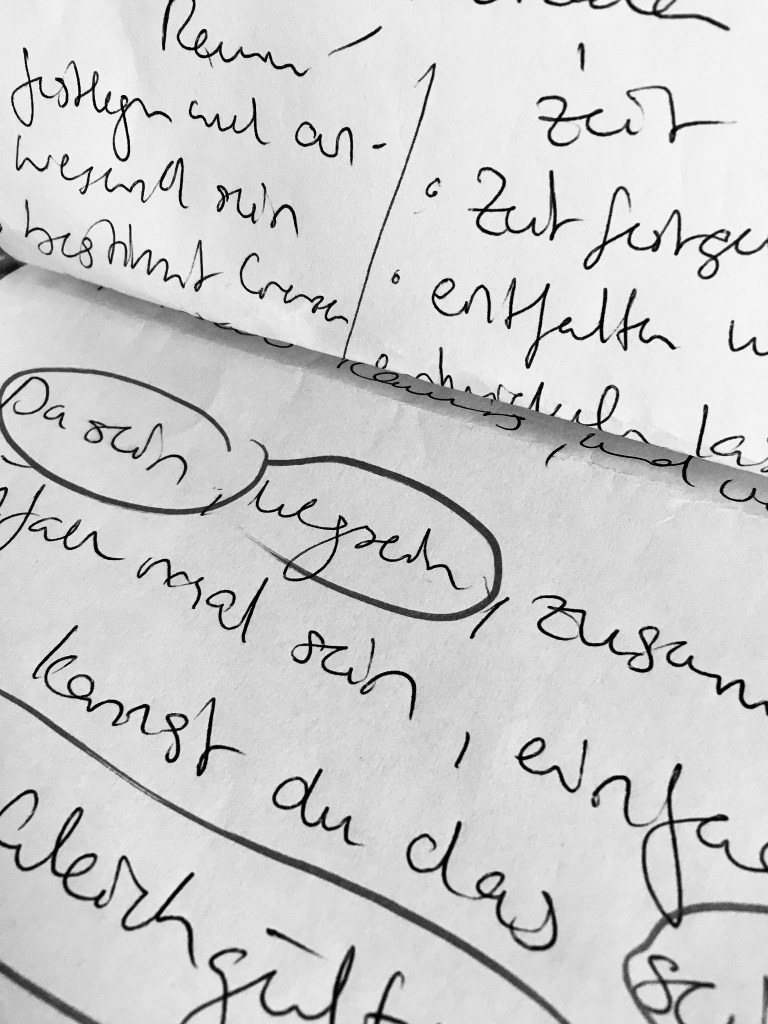 Raum
festlegen und an-
wesend sein
bestimmt Grenzen
Zeit
• Zeit festge
• entfalten
entwickeln las
Da sein, wegsein, zusam
mal sein, einfac
kannst du das
Gleichgült